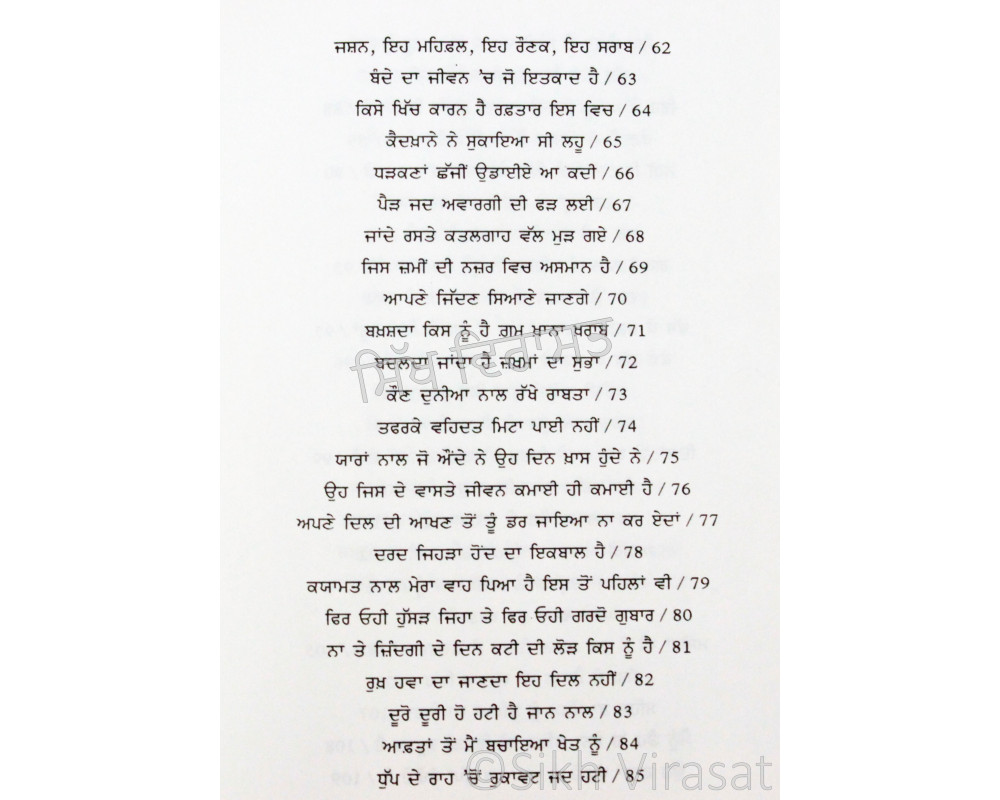 ਜਸ਼ਨ, ਇਹ ਮਹਿਫ਼ਲ, ਇਹ ਰੌਣਕ, ਇਹ ਸਰਾਬ / 62
ਬੰਦੇ ਦਾ ਜੀਵਨ 'ਚ ਜੋ ਇਤਕਾਦ ਹੈ / 63
ਕਿਸੇ ਖਿੱਚ ਕਾਰਨ ਹੈ ਰਫ਼ਤਾਰ ਇਸ ਵਿਚ / 64
ਕੈਦਖ਼ਾਨੇ ਨੇ ਸੁਕਾਇਆ ਸੀ ਲਹੂ / 65
ਧੜਕਣਾਂ ਛੱਜੀਂ ਉਡਾਈਏ ਆ ਕਦੀ / 66
ਪੈੜ ਜਦ ਅਵਾਰਗੀ ਦੀ ਫੜ ਲਈ / 67
ਜਾਂਦੇ ਰਸਤੇ ਕਤਲਗਾਹ ਵੱਲ ਮੁੜ ਗਏ / 68
ਜਿਸ ਜ਼ਮੀਂ ਦੀ ਨਜ਼ਰ ਵਿਚ ਅਸਮਾਨ ਹੈ / 69
ਆਪਣੇ ਜਿੱਦਣ ਸਿਆਣੇ ਜਾਣਗੇ / 70
ਬਖ਼ਸ਼ਦਾ ਕਿਸ ਨੂੰ ਹੈ ਗ਼ਮ ਖ਼ਾਨਾ ਖ਼ਰਾਬ / 71
ਸਿੱਖ ਵਿਰਾਸਤ
ਬਦਲਦਾ ਜਾਂਦਾ ਹੈ ਜ਼ਖ਼ਮਾਂ ਦਾ ਸੁਭਾ / 72
ਕੌਣ ਦੁਨੀਆ ਨਾਲ ਰੱਖੇ ਰਾਬਤਾ / 73
ਤਫਰਕੇ ਵਹਿਦਤ ਮਿਟਾ ਪਾਈ ਨਹੀਂ / 74
ਯਾਰਾਂ ਨਾਲ ਜੋ ਔਂਦੇ ਨੇ ਉਹ ਦਿਨ ਖ਼ਾਸ ਹੁੰਦੇ ਨੇ / 75
ਉਹ ਜਿਸ ਦੇ ਵਾਸਤੇ ਜੀਵਨ ਕਮਾਈ ਹੀ ਕਮਾਈ ਹੈ / 76
ਅਪਣੇ ਦਿਲ ਦੀ ਆਖਣ ਤੋਂ ਤੂੰ ਡਰ ਜਾਇਆ ਨਾ ਕਰ ਏਦਾਂ / 77
ਦਰਦ ਜਿਹੜਾ ਹੋਂਦ ਦਾ ਇਕਬਾਲ ਹੈ / 78
ਕਯਾਮਤ ਨਾਲ ਮੇਰਾ ਵਾਹ ਪਿਆ ਹੈ ਇਸ ਤੋਂ ਪਹਿਲਾਂ ਵੀ / 79
ਫਿਰ ਓਹੀ ਹੁੱਸੜ ਜਿਹਾ ਤੇ ਫਿਰ ਓਹੀ ਗਰਦੋ ਗੁਬਾਰ / 80
ਨਾ ਤੇ ਜ਼ਿੰਦਗੀ ਦੇ ਦਿਨ ਕਟੀ ਦੀ ਲੋੜ ਕਿਸ ਨੂੰ ਹੈ / 81
ਰੁਖ਼ ਹਵਾ ਦਾ ਜਾਣਦਾ ਇਹ ਦਿਲ ਨਹੀਂ / 82
ਦੂਰੋ ਦੂਰੀ ਹੋ ਹਟੀ ਹੈ ਜਾਨ ਨਾਲ / 83
ਆਫ਼ਤਾਂ ਤੋਂ ਮੈਂ ਬਚਾਇਆ ਖੇਤ ਨੂੰ / 84
ਧੁੱਪ ਦੇ ਰਾਹ 'ਚੋਂ ਰੁਕਾਵਟ ਜਦ ਹਟੀ / 85
©Sikh Virasat